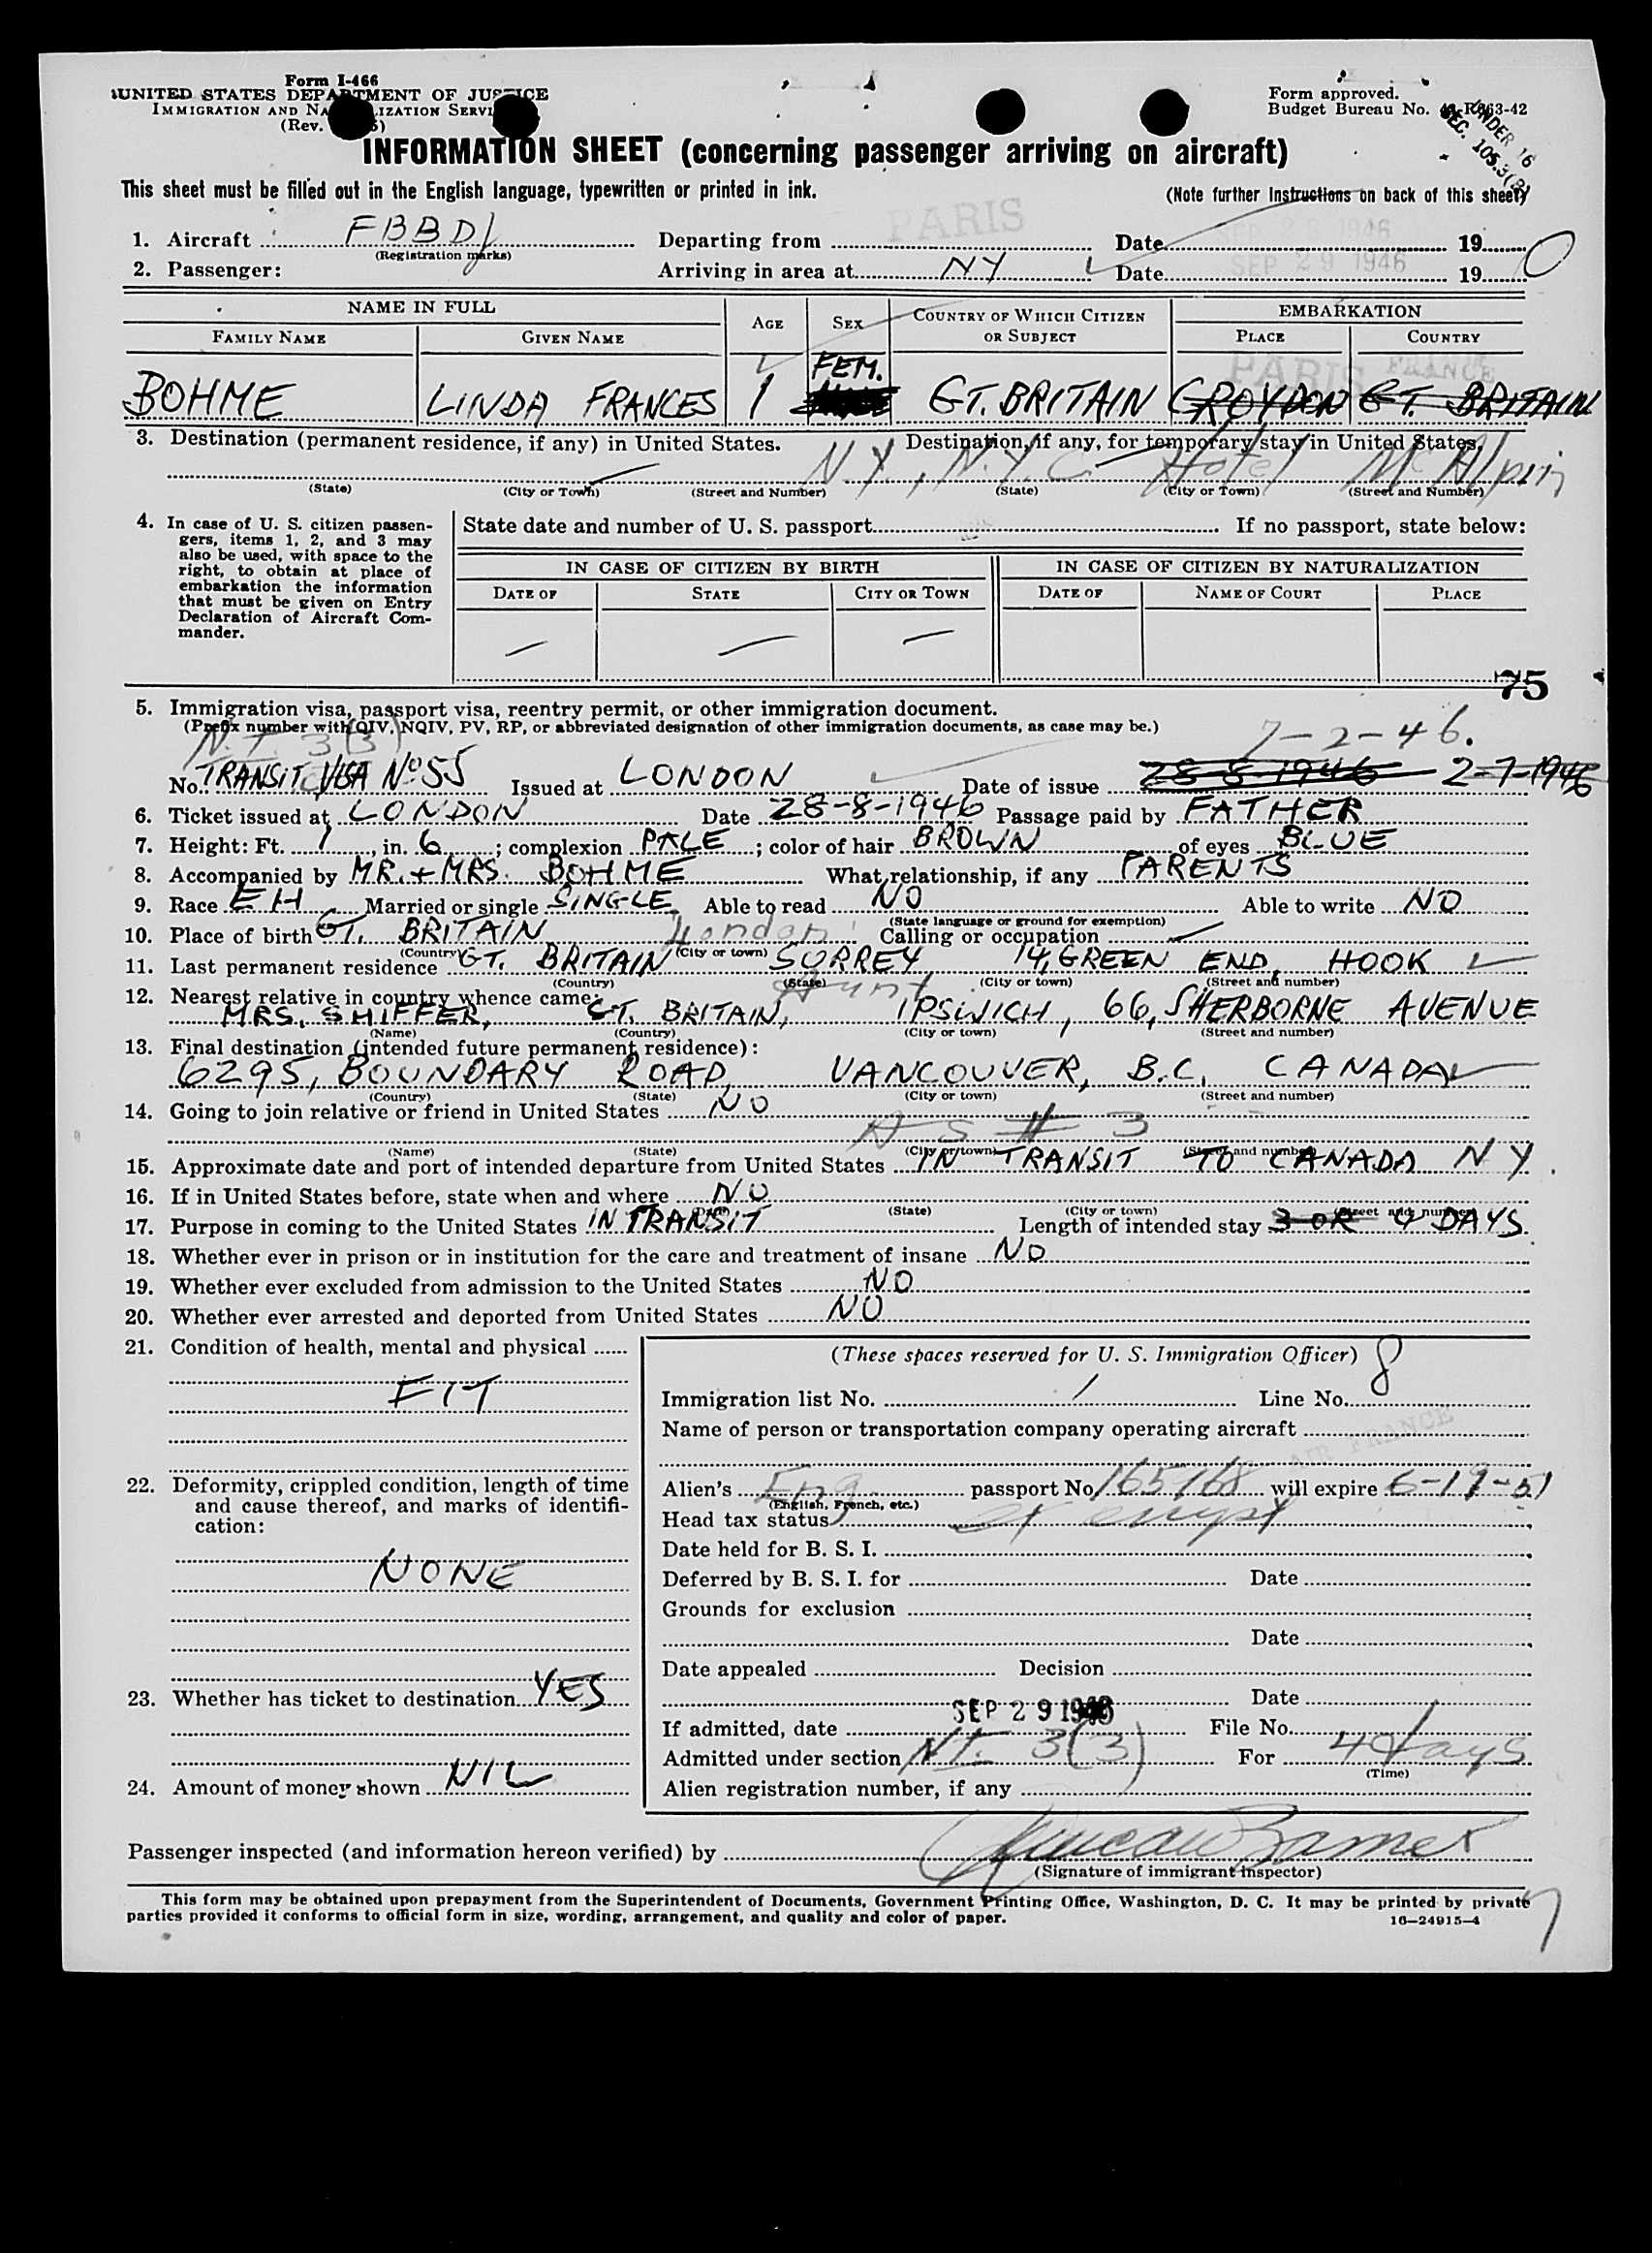 Form I-466
UNITED STATES DEPARTMENT OF JUSTICE
IMMIGRATION AND NATURALIZATION SERVICE
(Rev.
Form approved.
Budget Bureau No. 43-R063-42
UNDER 16
SEC. 105.3(B)
INFORMATION SHEET (concerning passenger arriving on aircraft)
This sheet must be filled out in the English language, typewritten or printed in ink.
(Note further Instructions on back of this sheet)
1. Aircraft FBBD Departing from PARIS Date SEP 28 1946 19
(Registration marks)
2. Passenger: Arriving in area at NY Date SEP 29 1946 19
0
NAME IN FULL AGE SEX COUNTRY OF WHICH CITIZEN OR SUBJECT EMBARKATION
FAMILY NAME GIVEN NAME PLACE COUNTRY
FEM. PARIS FRANCE
BOHME LINDA FRANCES 1 GT. BRITAIN CROYDON GT. BRITAIN
3. Destination (permanent residence, if any) in United States. Destination, if any, for temporary stay in United States.
N.Y., N.Y.C. Hotel McAlpin
(State) (City or Town) (Street and Number) (State) (City or Town) (Street and Number)
4. In case of U. S. citizen passengers, items 1, 2, and 3 may also be used, with space to the right, to obtain at place of embarkation the information that must be given on Entry Declaration of Aircraft Commander.
State date and number of U. S. passport If no passport, state below:
IN CASE OF CITIZEN BY BIRTH IN CASE OF CITIZEN BY NATURALIZATION
DATE OF STATE CITY OR TOWN DATE OF NAME OF COURT PLACE
75
5. Immigration visa, passport visa, reentry permit, or other immigration document.
(Prefix number with QIV, NQIV, PV, RP, or abbreviated designation of other immigration documents, as case may be.)
N.I. 3(3) 7-2-46.
No. TRANSIT VISA No 55 Issued at LONDON Date of issue 28-8-1946 2-7-1946
6. Ticket issued at LONDON Date 28-8-1946 Passage paid by FATHER
7. Height: Ft. 1, in. 6; complexion PALE; color of hair BROWN of eyes BLUE
8. Accompanied by MR. + MRS. BOHME What relationship, if any PARENTS
9. Race EH Married or single SINGLE Able to read NO Able to write NO
(State language or ground for exemption)
10. Place of birth GT. BRITAIN London Calling or occupation
(Country) (City or town)
11. Last permanent residence GT. BRITAIN SURREY 14, GREEN END, HOOK
(Country) (State) (City or town) (Street and number)
12. Nearest relative in country whence came: Aunt
MRS. SHIFFER, GT. BRITAIN, IPSWICH, 66, SHERBORNE AVENUE
(Name) (Country) (City or town) (Street and number)
13. Final destination (intended future permanent residence):
6295, BOUNDARY ROAD, VANCOUVER, B.C. CANADA
(Country) (State) (City or town) (Street and number)
14. Going to join relative or friend in United States NO
AS # 3
(Name) (State) (City or town) (Street and number)
15. Approximate date and port of intended departure from United States IN TRANSIT TO CANADA NY.
16. If in United States before, state when and where NO
(Date) (State) (City or town) (Street and number)
17. Purpose in coming to the United States IN TRANSIT Length of intended stay 3 OR 4 DAYS.
18. Whether ever in prison or in institution for the care and treatment of insane NO
19. Whether ever excluded from admission to the United States NO
20. Whether ever arrested and deported from United States NO
21. Condition of health, mental and physical
FIT
22. Deformity, crippled condition, length of time and cause thereof, and marks of identification:
NONE
23. Whether has ticket to destination YES
24. Amount of money shown NIL
(These spaces reserved for U. S. Immigration Officer)
Immigration list No. 1 Line No. 8
Name of person or transportation company operating aircraft
AIR FRANCE
Alien's Eng passport No 165168 will expire 6-19-51
(English, French, etc.)
Head tax status exempt
Date held for B. S. I.
Deferred by B. S. I. for Date
Grounds for exclusion
Date
Date appealed Decision
Date
If admitted, date SEP 29 1946 File No.
Admitted under section N.I. 3(3) For 4 days
(Time)
Alien registration number, if any
Passenger inspected (and information hereon verified) by
(Signature of immigrant inspector)
This form may be obtained upon prepayment from the Superintendent of Documents, Government Printing Office, Washington, D. C. It may be printed by private
parties provided it conforms to official form in size, wording, arrangement, and quality and color of paper.
16—24915-4